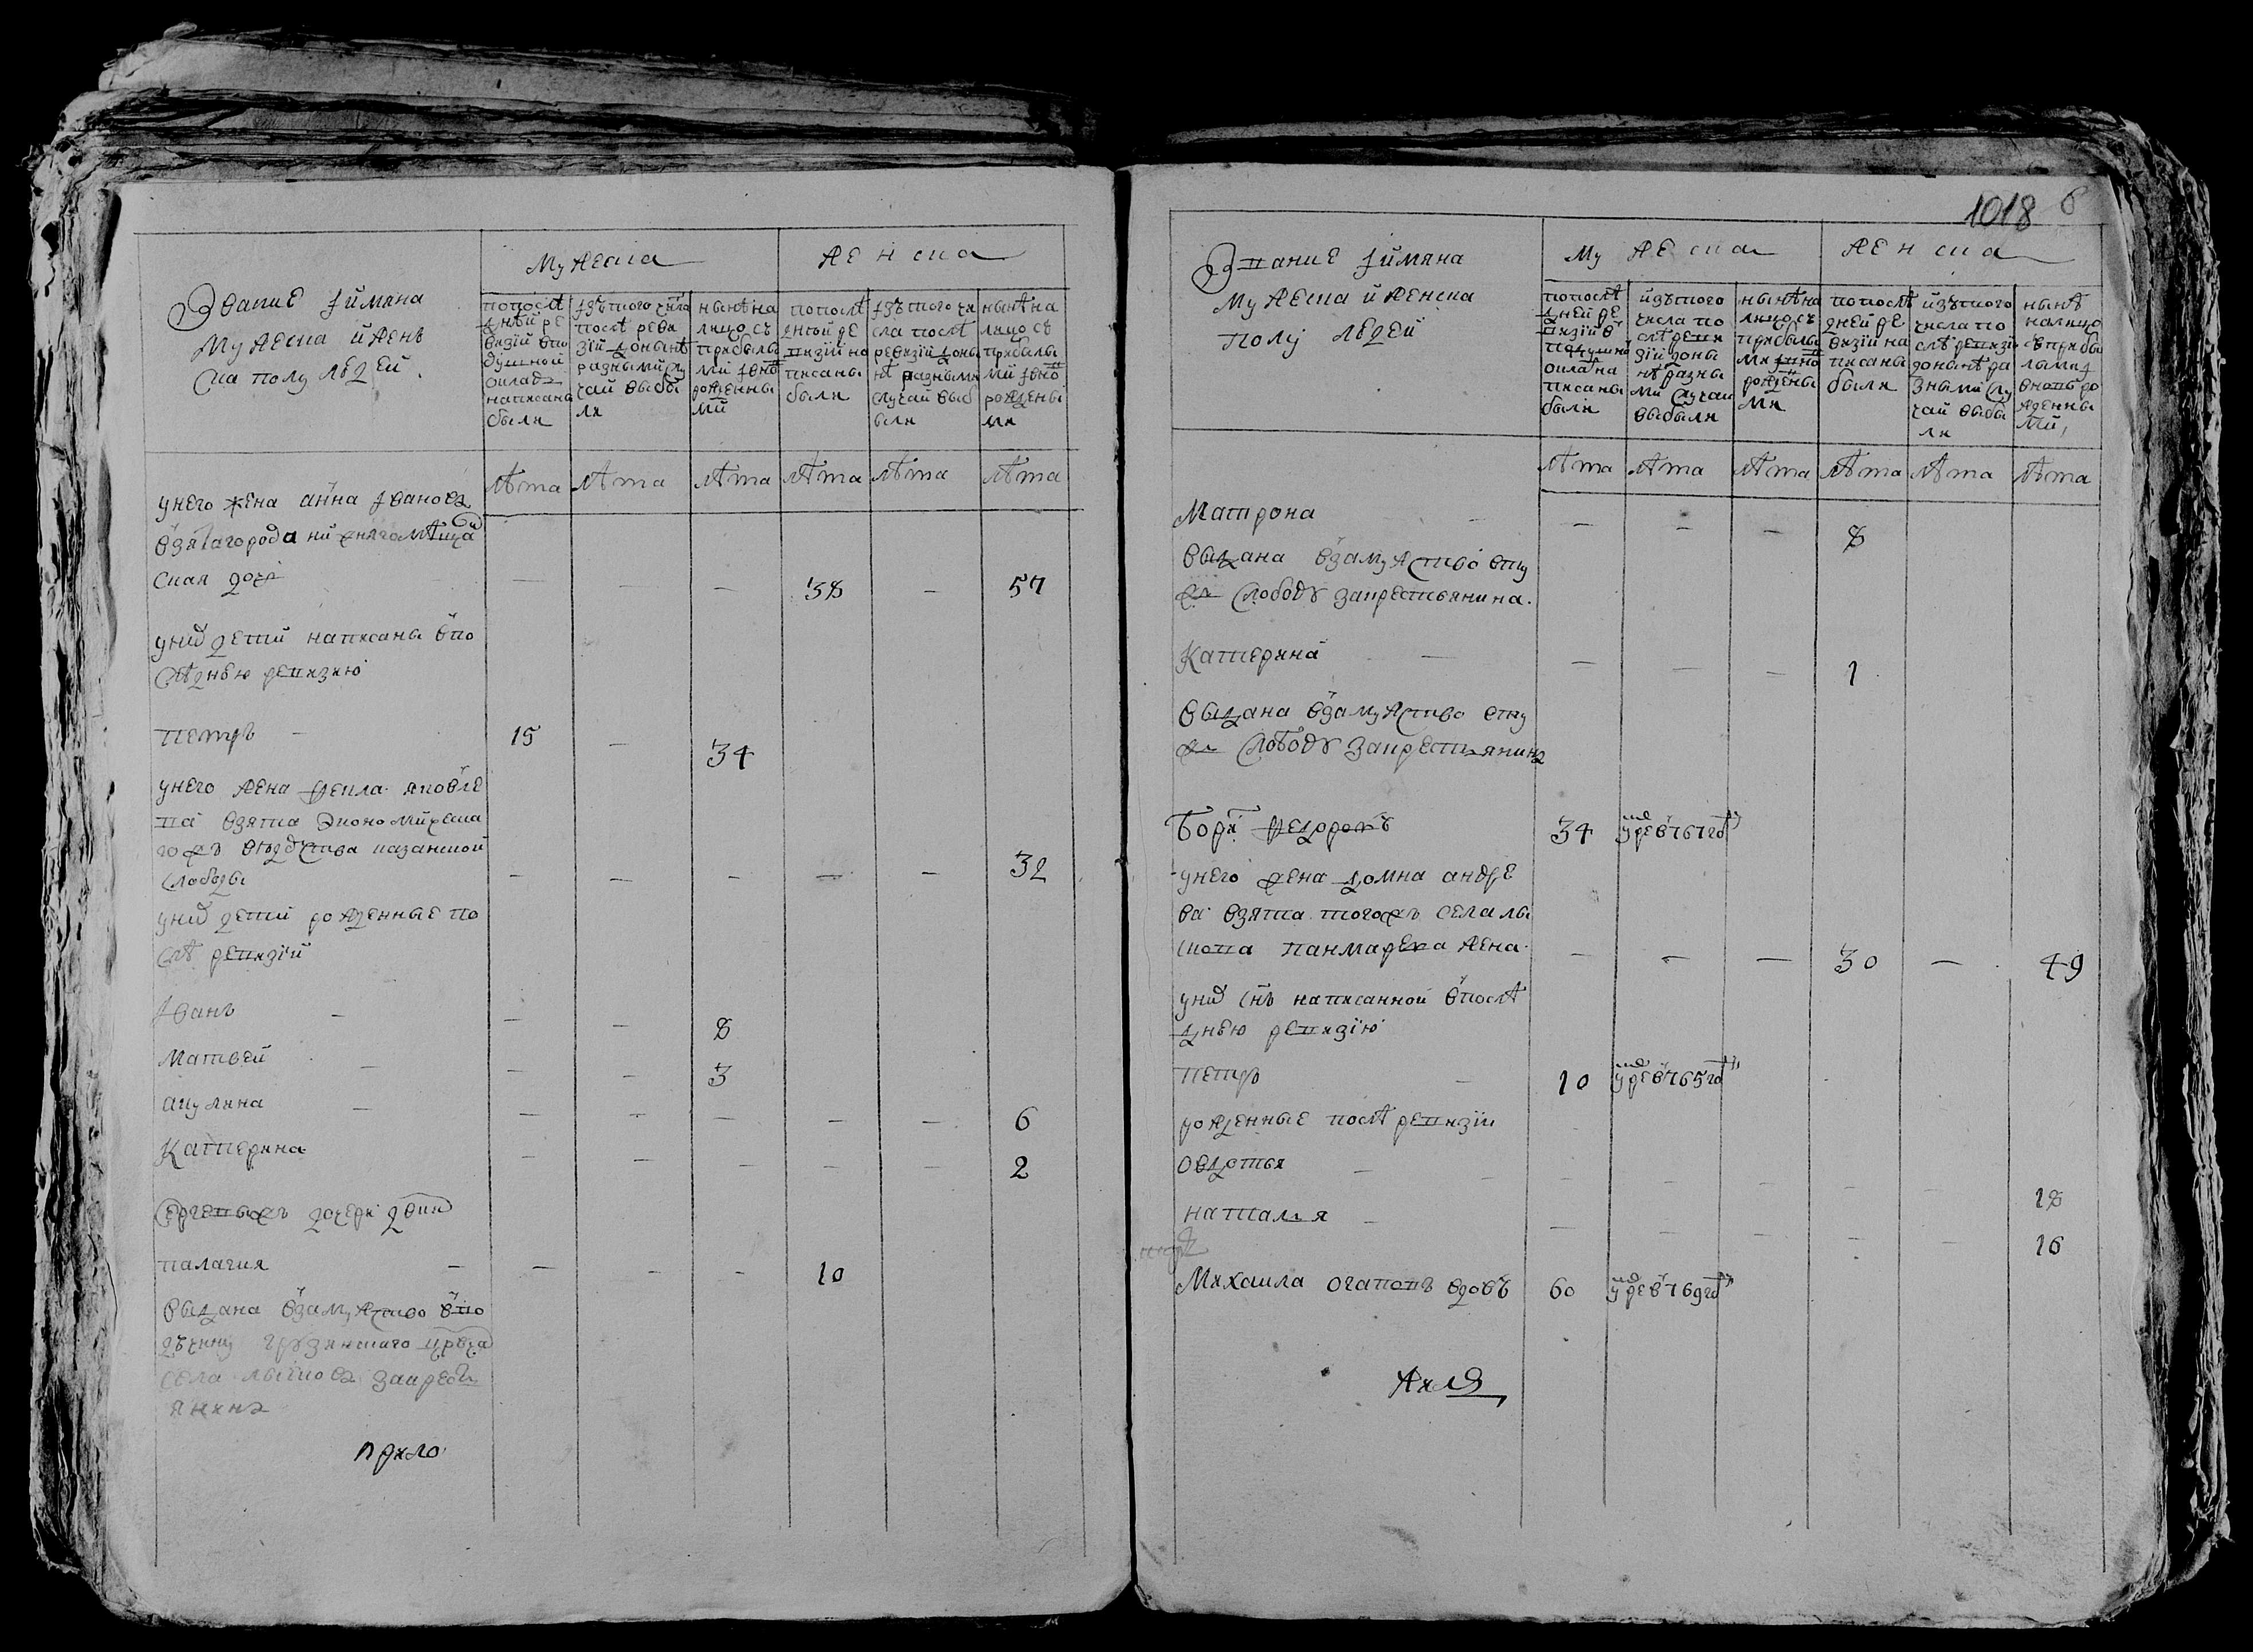 Звание і имяна
Мужеска и женъ
ска полу людей
Мужеска
Женска
по послѣ
дней ре
визіи въ по
душной
окладъ
написаны
были
изъ того числа
послѣ реви
зіи до нынѣ
разными слу
чаи выбы
ли
нынѣ на
лицо съ
прибылы
ми и вно
рожденны
ми
по послѣ
дней ре
визіи на
писаны
были
изъ того чи
сла послѣ
ревизіи до ны
нѣ разными
случаи выб
были
нынѣ на
лицо съ
прибылы
ми и вно
рожденны
ми
лѣта лѣта лѣта лѣта лѣта лѣта
у него жена анна иванова
взята города нижняго мѣща
ская дочь — — — 38 — 57
у них дети написаны в по
слѣднюю ревизию
петръ — 15 — 34
у него жена фекла яковле
ва взята экономическа
го ж ведомства казанской
слободы — — — — — 32
у них дети рожденные по
слѣ ревизіи
Иванъ — — — 8
Матвей — — — 3
акулина — — — — — — 6
Катерина — — — — — 2
сергевых дочери двик
палагия — — — — 10
выдана в замужство в во
дчину грузинскаго црвча
села лыскова за крестья
янина
Число
1018 6
Звание і имяна
Мужеска и женска
полу людей
Мужеска
Женска
по послѣ
дней ре
визіи в
подушно
окла на
писаны
были
изъ того
числа по
слѣ реви
зіи до ны
нѣ разны
ми случаи
выбыли
нынѣ на
лицо съ
прибылы
ми и вно
рождены
ми
по послѣ
дней ре
визіи на
писаны
были
изъ того
числа по
слѣ ревизіи
до нынѣ ра
зными слу
чаи выбы
ли
нынѣ
на лицо
съ прибы
лыми и
вновь ро
жденны
ми
лѣта лѣта лѣта лѣта лѣта лѣта
Матрона — — — — 8
выдана в замужство в ту
ж слободу за крестьянина
Катерина — — — — 1
выдана в замужство в ту
ж слободу за крестьянина
Борис федоровъ 34 умре в 767 го
у него жена домна андре
ва взята того ж села лы
скова жена — — — 30 — 49
у них снъ написанной в послѣ
днюю ревизію
петръ — 10 умре в 765 го
рожденные послѣ ревизіи
овдотья — — — — — — — 18
наталия — — — — — — 16
Михаила огаповъ вдовъ 60 умре в 769 го